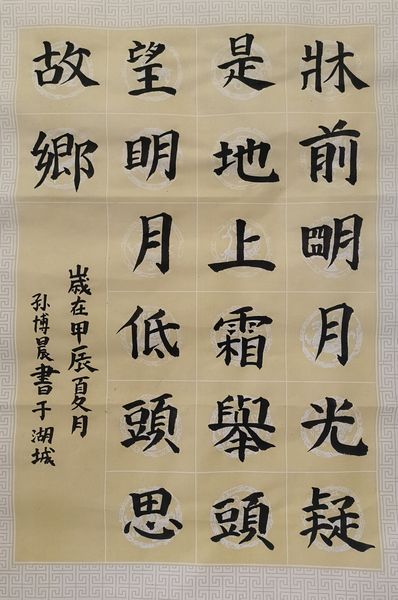 牀前明月光疑
是地上霜舉頭
望明月低頭思
故鄉
歲在甲辰夏月
孙博晨書于湖城